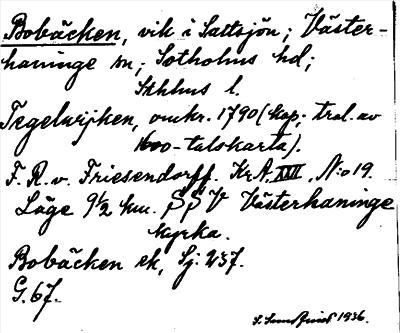 Bobäcken, vik i Saltsjön; Väster-
haninge sn; Sotholms hd;
Sthlms l.
Tegelwijken, omkr. 1790 (kop; tral. av
1600-talskarta).
F. R. v. Friesendorff. KrA, XVII, N:o 19.
Läge 9½ km. SSV Västerhaninge
kyrka.
Bobäcken ek, Sj: 237.
G. 67.
1936.